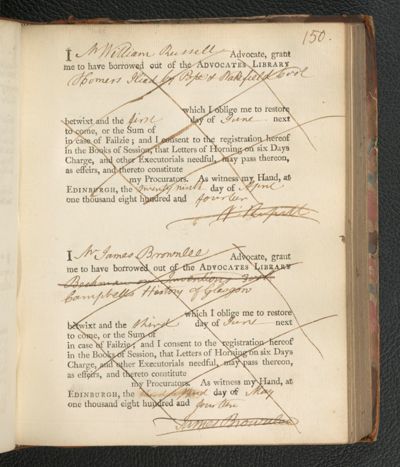 150.
I Mr William Russell Advocate, grant
me to have borrowed out of the ADVOCATES LIBRARY
Homers Iliad by Pope & Wakefield
which I oblige me to restore
betwixt and the first day of June next
to come, or the Sum of
in case of Failzie; and I consent to the registration hereof
in the Books of Session, that Letters of Horning on six Days
Charge, and other Executorials needful, may pass thereon,
as effeirs, and thereto constitute
my Procurators. As witness my Hand, at
EDINBURGH, the twenty ninth day of April
one thousand eight hundred and fourteen
W Russell
I Mr James Brownlee Advocate, grant
me to have borrowed out of the ADVOCATES LIBRARY
Beckman on Inventions
Campbells History of Glasgow
which I oblige me to restore
betwixt and the third day of June next
to come, or the Sum of
in case of Failzie; and I consent to the registration hereof
in the Books of Session, that Letters of Horning on six Days
Charge, and other Executorials needful, may pass thereon,
as effeirs, and thereto constitute
my Procurators. As witness my Hand, at
EDINBURGH, the day of May
one thousand eight hundred and fourteen
James Brownlee